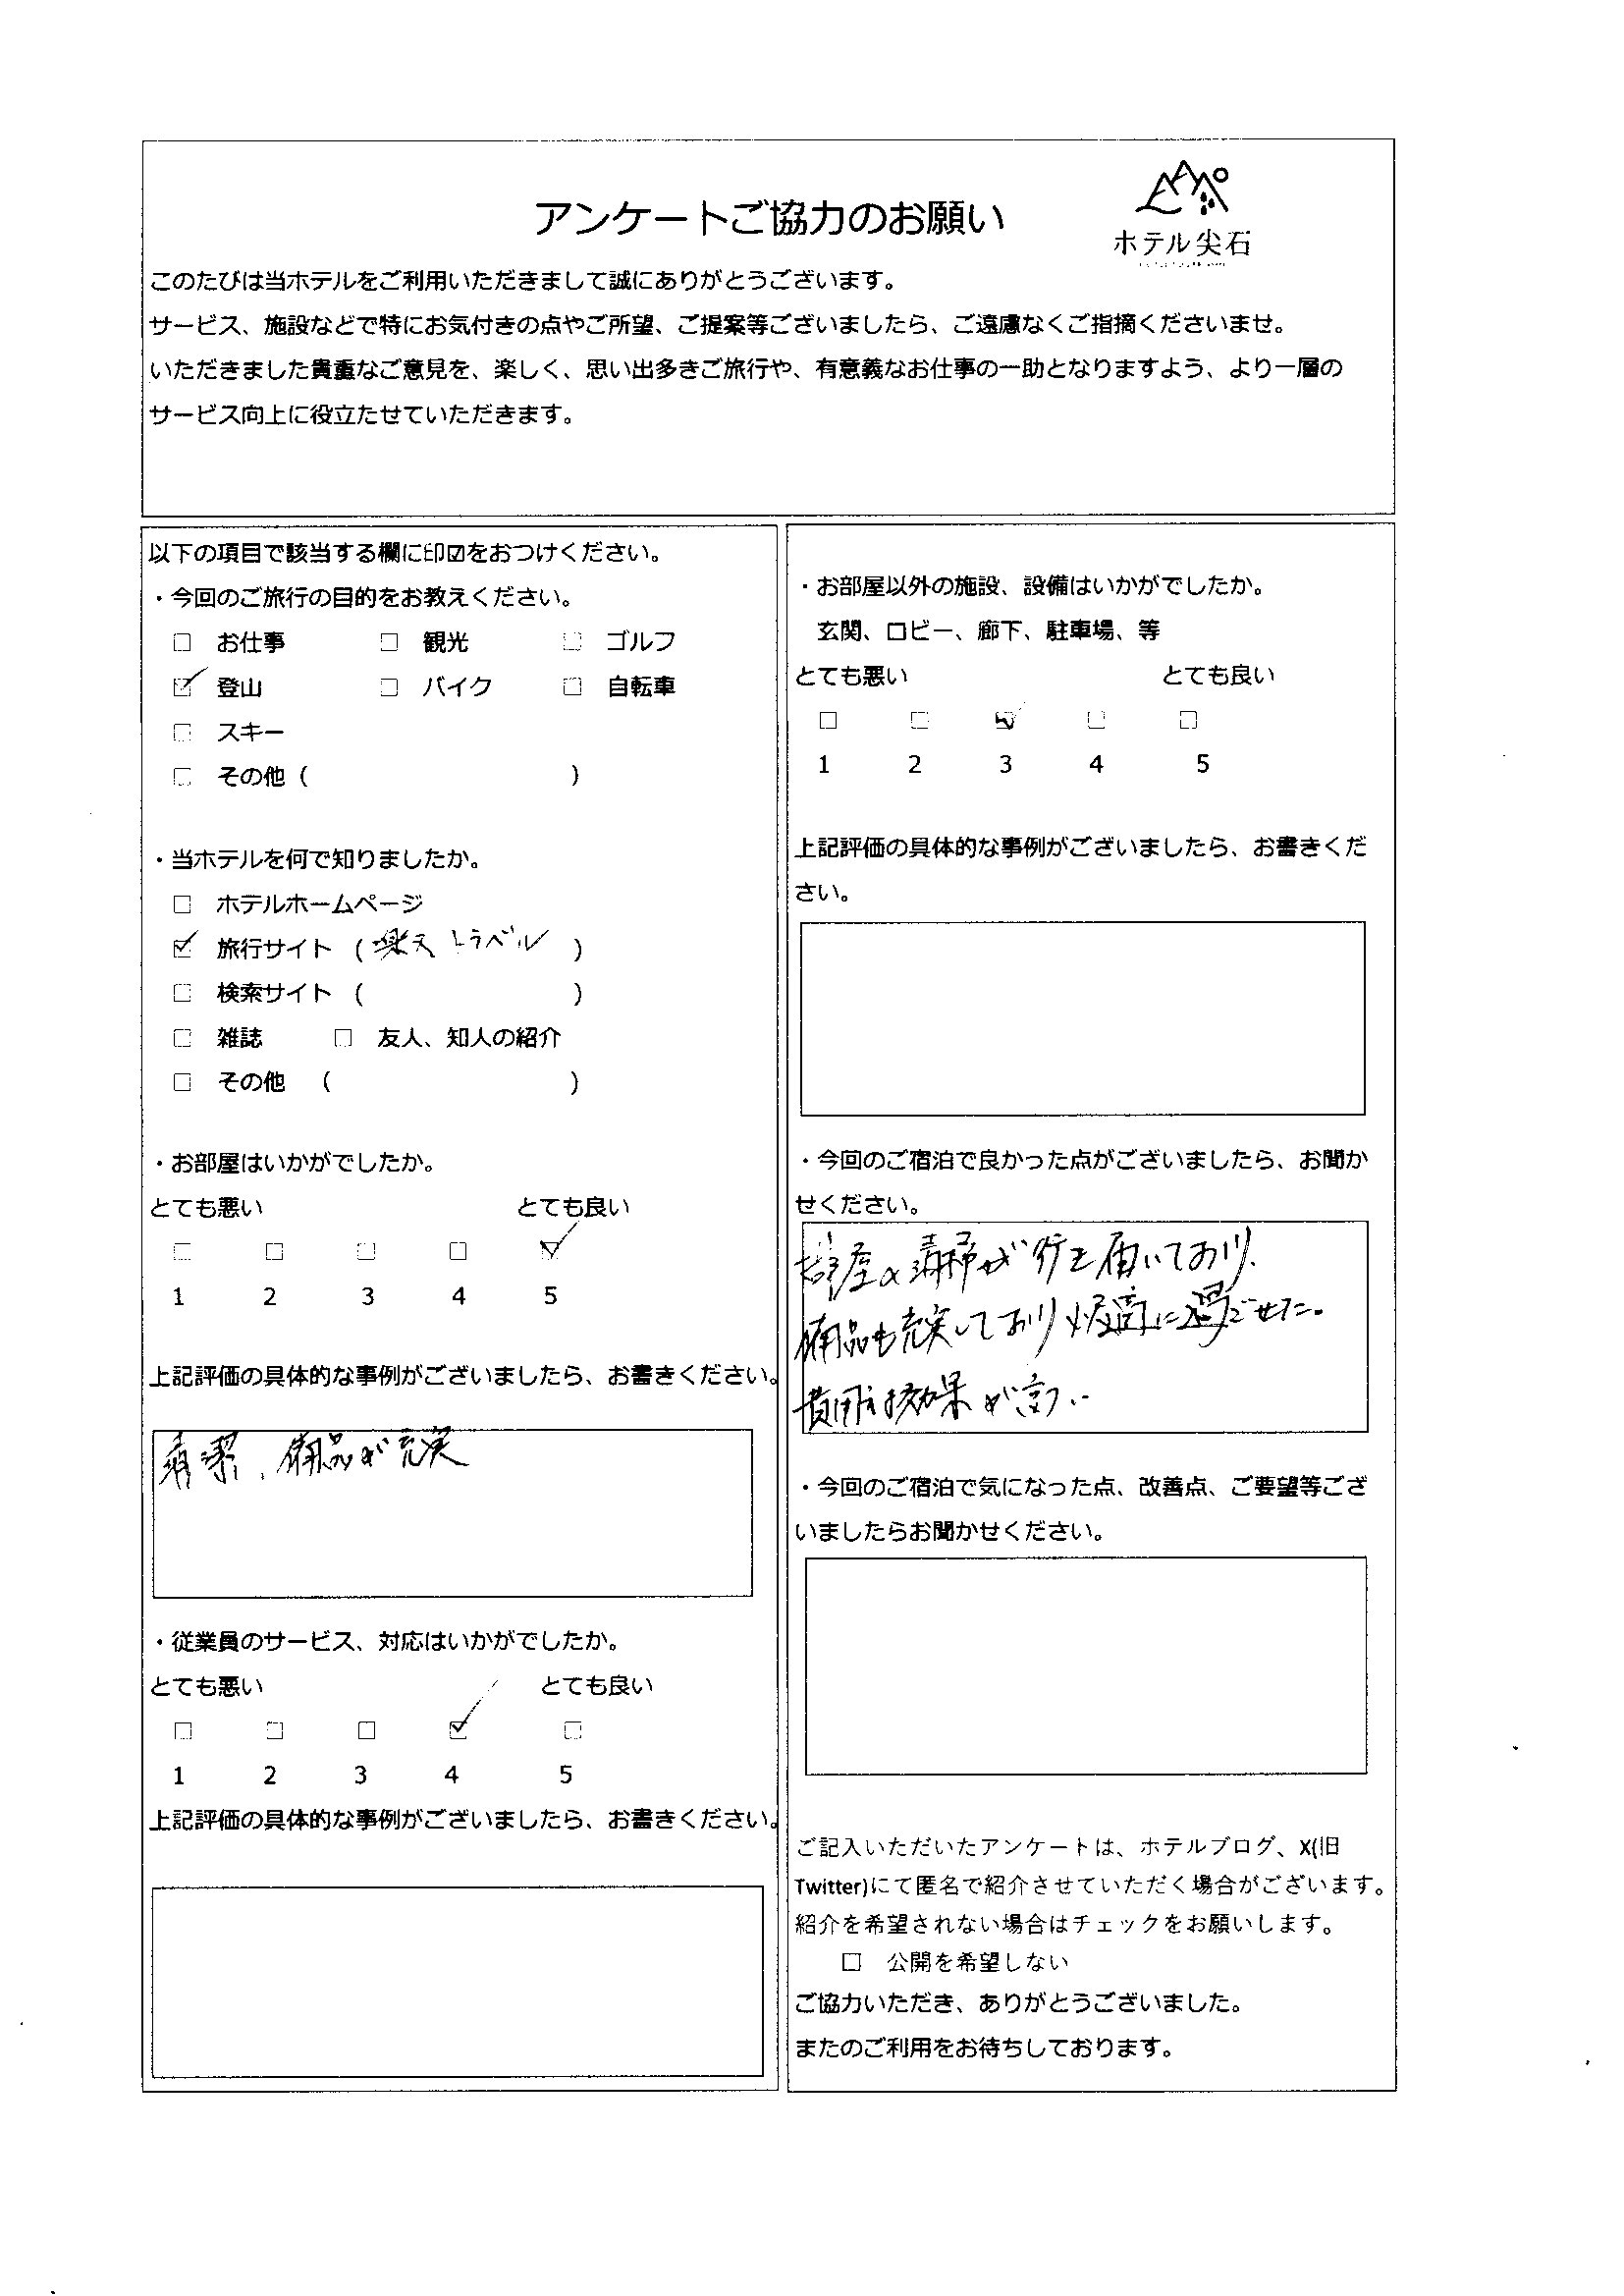 アンケートご協力のお願い
ホテル尖石
このたびは当ホテルをご利用いただきまして誠にありがとうございます。
サービス、施設などで特にお気付きの点やご所望、ご提案等ございましたら、ご遠慮なくご指摘くださいませ。
いただきました貴重なご意見を、楽しく、思い出多きご旅行や、有意義なお仕事の一助となりますよう、より一層の
サービス向上に役立たせていただきます。
以下の項目で該当する欄に印☑をおつけください。
・今回のご旅行の目的をお教えください。
□ お仕事 □ 観光 □ ゴルフ
☑ 登山 □ バイク □ 自転車
□ スキー
□ その他 ( )
・当ホテルを何で知りましたか。
□ ホテルホームページ
☑ 旅行サイト ( 楽天トラベル )
□ 検索サイト ( )
□ 雑誌 □ 友人、知人の紹介
□ その他 ( )
・お部屋はいかがでしたか。
とても悪い とても良い
□ □ □ □ ☑
1 2 3 4 5
上記評価の具体的な事例がございましたら、お書きください。
清潔、備品が充実
・従業員のサービス、対応はいかがでしたか。
とても悪い とても良い
□ □ □ ☑ □
1 2 3 4 5
上記評価の具体的な事例がございましたら、お書きください。
・お部屋以外の施設、設備はいかがでしたか。
玄関、ロビー、廊下、駐車場、等
とても悪い とても良い
□ □ ☑ □ □
1 2 3 4 5
上記評価の具体的な事例がございましたら、お書きくだ
さい。
・今回のご宿泊で良かった点がございましたら、お聞か
せください。
部屋の清掃が行き届いており、
備品も充実しており快適に過ごせた。
費用対効果が高い
・今回のご宿泊で気になった点、改善点、ご要望等ござ
いましたらお聞かせください。
ご記入いただいたアンケートは、ホテルブログ、X(旧
Twitter)にて匿名で紹介させていただく場合がございます。
紹介を希望されない場合はチェックをお願いします。
□ 公開を希望しない
ご協力いただき、ありがとうございました。
またのご利用をお待ちしております。